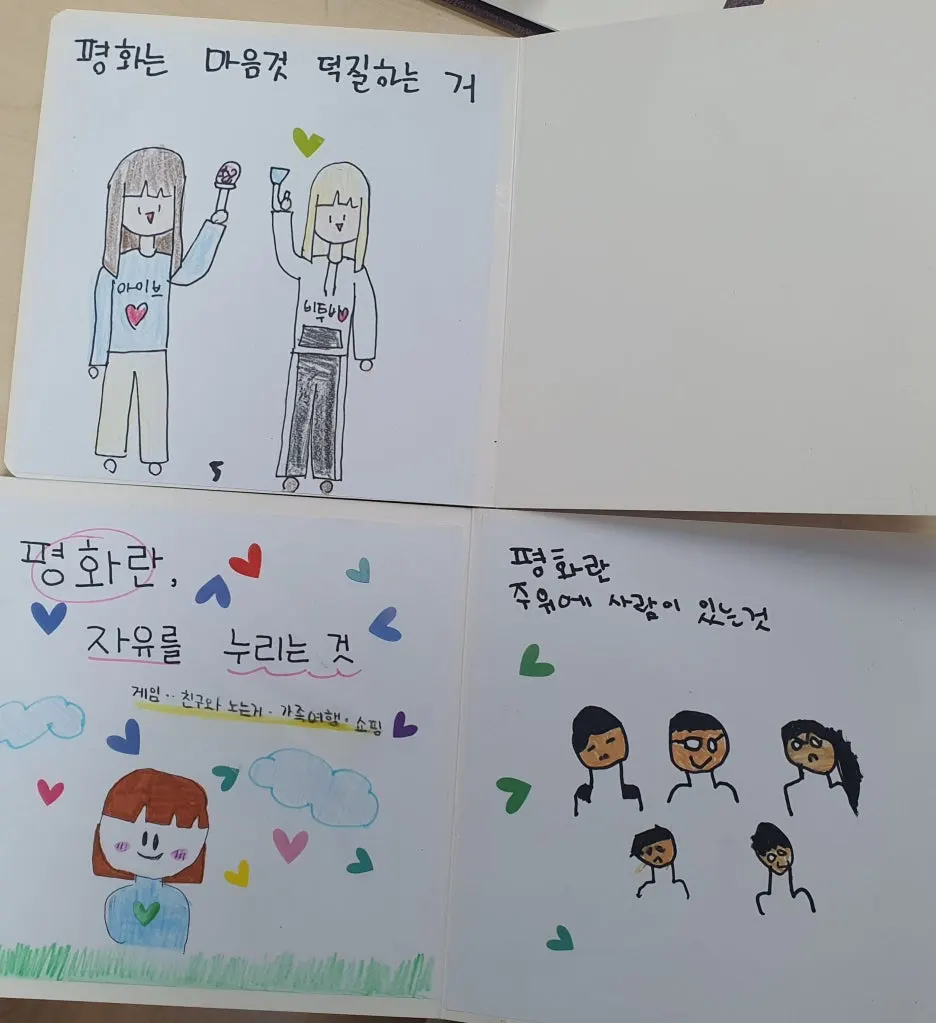 평화는 마음것 덕질하는 거
아이브
비투비
평화란,
자유를 누리는 것
게임·· 친구와 노는거 · 가족여행 · 쇼핑
평화란
주위에 사람이 있는것